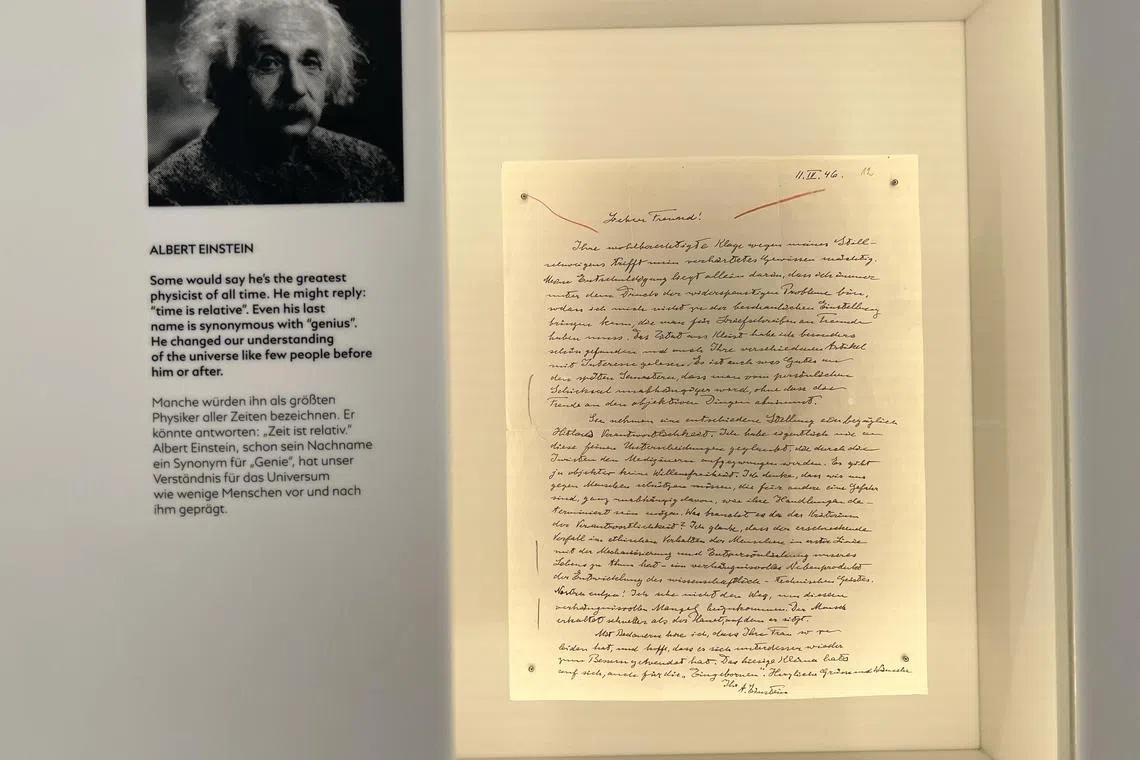 ALBERT EINSTEIN
Some would say he's the greatest
physicist of all time. He might reply:
"time is relative". Even his last
name is synonymous with "genius".
He changed our understanding
of the universe like few people before
him or after.
Manche würden ihn als größten
Physiker aller Zeiten bezeichnen. Er
könnte antworten: „Zeit ist relativ."
Albert Einstein, schon sein Nachname
ein Synonym für „Genie", hat unser
Verständnis für das Universum
wie wenige Menschen vor und nach
ihm geprägt.
11.IV.46. 12
Lieber Freund!
Ihre wohlberechtigte Klage wegen meines Still-
schweigens trifft mein verhärtetes Gewissen mächtig.
Meine Entschuldigung liegt allein darin, dass ich immer
unter dem Drucke der widerspenstigen Probleme bin,
sodass ich mich nicht zu der beschaulichen Einstellung
bringen kann, die man für Briefschreiben an Freunde
haben muss. Das Zitat aus Kleist habe ich besonders
schön gefunden und auch Ihre verschiedenen Artikel
mit Interesse gelesen. Es ist auch was Gutes an
den späten Semestern, dass man vom persönlichen
Schicksal unabhängiger wird, ohne dass die
Freude an den objektiven Dingen abnimmt.
Sie nehmen eine entschiedene Stellung ein bezüglich
Hitlers Verantwortlichkeit. Ich habe eigentlich nie an
diese feinen Unterscheidungen geglaubt, die durch die
Juristen den Medizinern aufgezwungen werden. Es gibt
ja objektiv keine Willensfreiheit. Ich denke, dass wir uns
gegen Menschen schützen müssen, die für andere eine Gefahr
sind, ganz unabhängig davon, wie ihre Handlungen de-
terminiert sein mögen. Was braucht es da das Kriterium
der Verantwortlichkeit? Ich glaube, dass der erschreckende
Verfall im ethischen Verhalten der Menschen in erster Linie
mit der Mechanisierung und Entpersönlichung unseres
Lebens zu thun hat - ein verhängnisvolles Nebenprodukt
der Entwicklung des wissenschaftlich-technischen Geistes.
Nostra culpa! Ich sehe nicht den Weg, um diesem
verhängnisvollen Mangel beizukommen. Der Mensch
erkaltet schneller als der Planet, auf dem er sitzt.
Mit Bedauern höre ich, dass Ihre Frau
leiden hat, und hoffe, dass es sich unterdessen wieder
zum Bessern gewendet hat. Das hiesige Klima hats
auf sich, auch für die „Eingebornen". Herzliche Grüsse und Wünsche
Ihr
A. Einstein